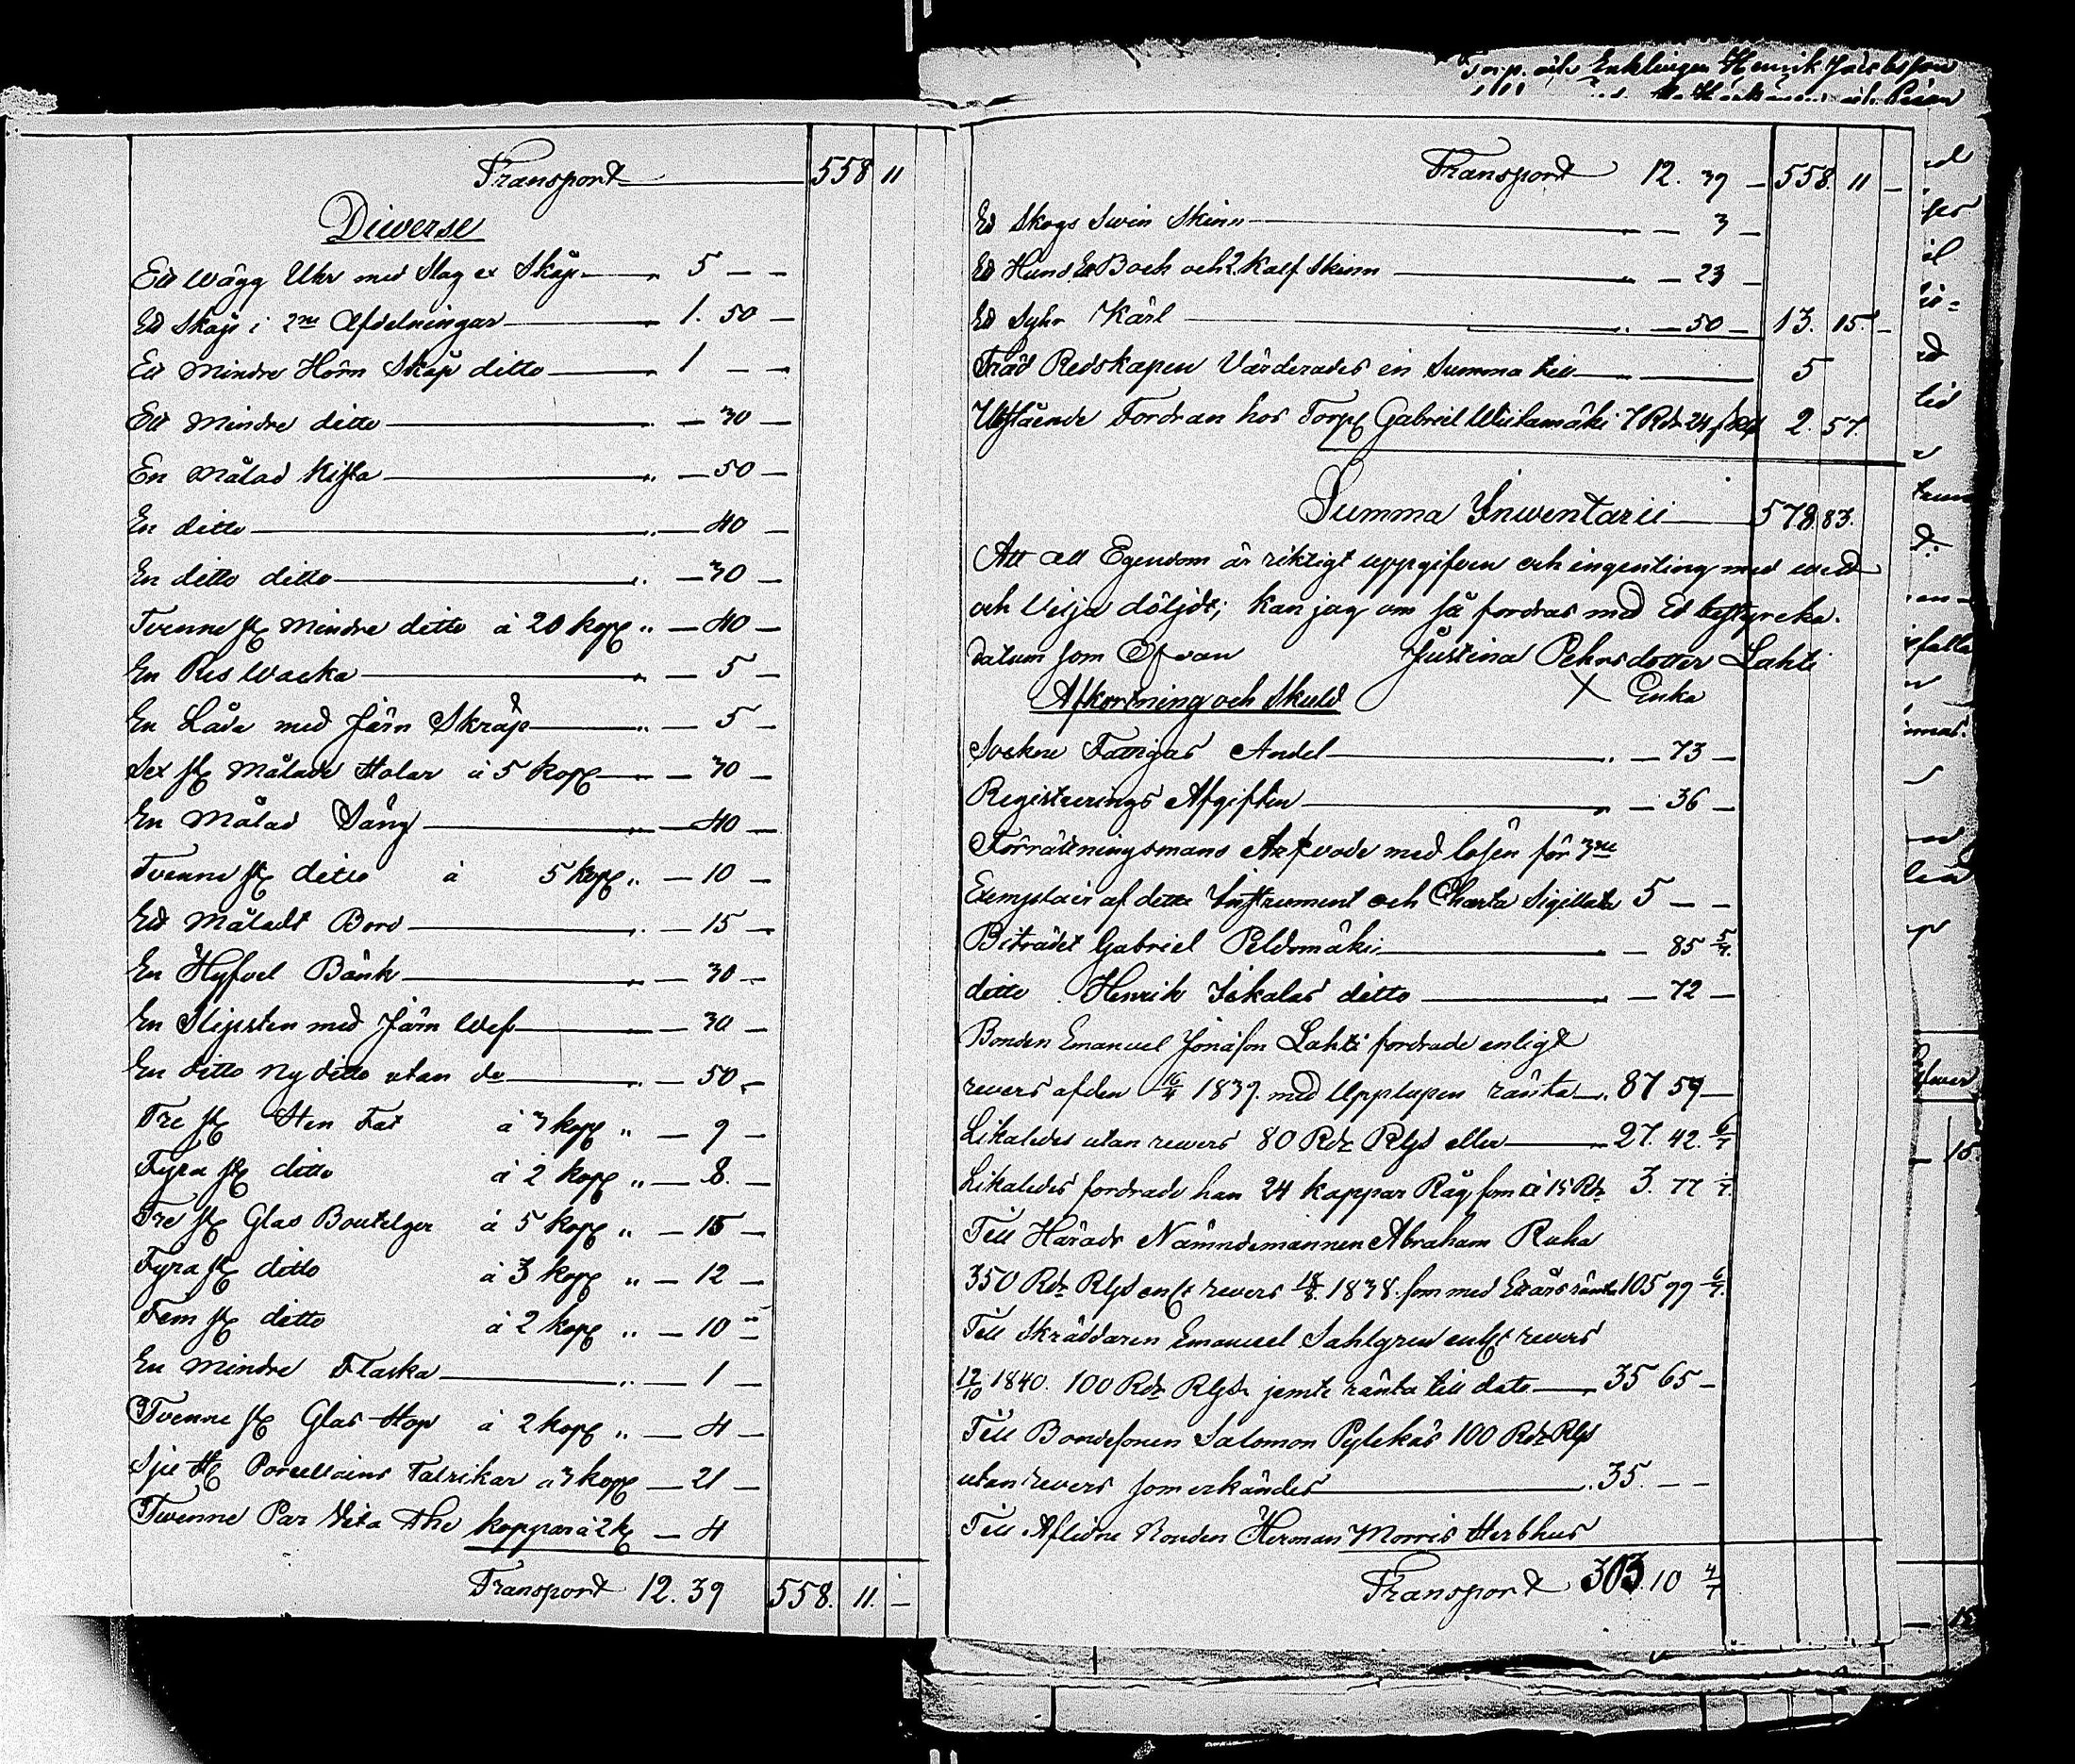 Transport 558 11
Diverse
Ett wägg Uhr med Slag et Skåp 5 – –
Ett Skåp i 2ne Afdelningar 1. 50 –
Ett mindre Hörn Skåp ditto 1 – –
Ett mindre ditto – 30 –
En målad Kista – 50 –
En ditto – 40 –
En ditto ditto – 30 –
Tvenne st mindre ditto à 20 kop – 40 –
En Res Wacka – 5 –
En Låda med Järn Skråp – 5 –
Sex st målade Stolar à 5 kop – 30 –
En målad Säng – 40 –
Tvenne st ditto à 5 kop – 10 –
Ett Måladt Bord – 15 –
En Hyfvel Bänk – 30 –
En Slipsten med Järn Wef – 30 –
En ditto ny ditto utan do – 50 –
Tre st Sten Fat à 3 kop – 9 –
Fyra st ditto à 2 kop – 8. –
Tre st Glas Boutelger à 5 kop – 15 –
Fyra st ditto à 3 kop – 12 –
Fem st ditto à 2 kop – 10 –
En mindre Flaska – 1 –
Tvenne st Glas Stop à 2 kop – 4 –
Sju st Porcellains Talrikar a 3 kop – 21 –
Tvenne Par Hvita The koppar à 2 k – 4
Transport 12. 39 558. 11. –
Torp. och Enklingen Henrik Jacobsson
och
Transport 12. 39 – 558. 11 –
Ett Skogs Svin Skinn – 3 –
Ett Hund Ett Bock och 2 Kalf Skinn – 23 –
Ett Syhr Kärl – 50 – 13. 15. –
Träd Redskapen Värderades en Summa till 5
Utstående Fordran hos Torp Gabriel Wiitamäki 7 Rdr 24 s Rgs 2. 57.
Summa Inventarii 578. 83.
Att all Egendom är riktigt uppgifven och ingenting med vett
och Vilja döljdt; kan jag om så fordras med Ed bestyrcka.
datum som Ofvan Justina Pehrsdotter Lahti
Afkortning och Skuld X Enka
Socken Fattigas Andel – 73 –
Registrerings Afgiften – 36 –
Förrättningsmans Arfvode med lösen för 3ne
Exemplair af detta Instrument och Charta Sigillata 5 – –
Biträdet Gabriel Peldomäki – 85 5/7.
ditto Henrik Iskalas ditto – 72 –
Bonden Emanuel Jonasson Lahti fordrade enligt
revers af den 16/4 1839. med Upplupen ränta 87 59 –
Likaledes utan revers 80 Rdr Rgs eller 27. 42. 6/7
Likaledes fordrade han 24 kappar Råg som à 15 Rdr 3. 77 1/7.
Till Härads Nämndemannen Abraham Ruha
350 Rdr Rgs enlt revers 18/8. 1838. som med Ett års ränta 105 99 6/7.
Till Skräddaren Emanuel Sahlgren enlt revers
12/10 1840. 100 Rdr Rgs jemte ränta till dato 35 65 –
Till Bondesonen Salomon Pylekäs 100 Rdr Rgs
utan revers som erkändes 35. – –
Till Aflidne Bonden Herman Morris Sterbhus
Transport 303. 10 4/7